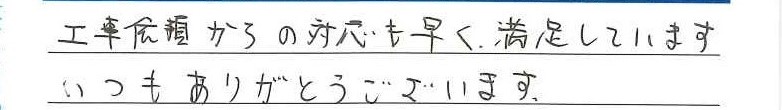 工事依頼からの対応も早く、満足しています
いつもありがとうございます。